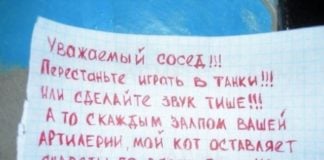 Уважаемый сосед!!!
Перестаньте играть в танки!!!
или сделайте звук тише!!!
А то с каждым залпом вашей
артилерии, мой кот оставляет